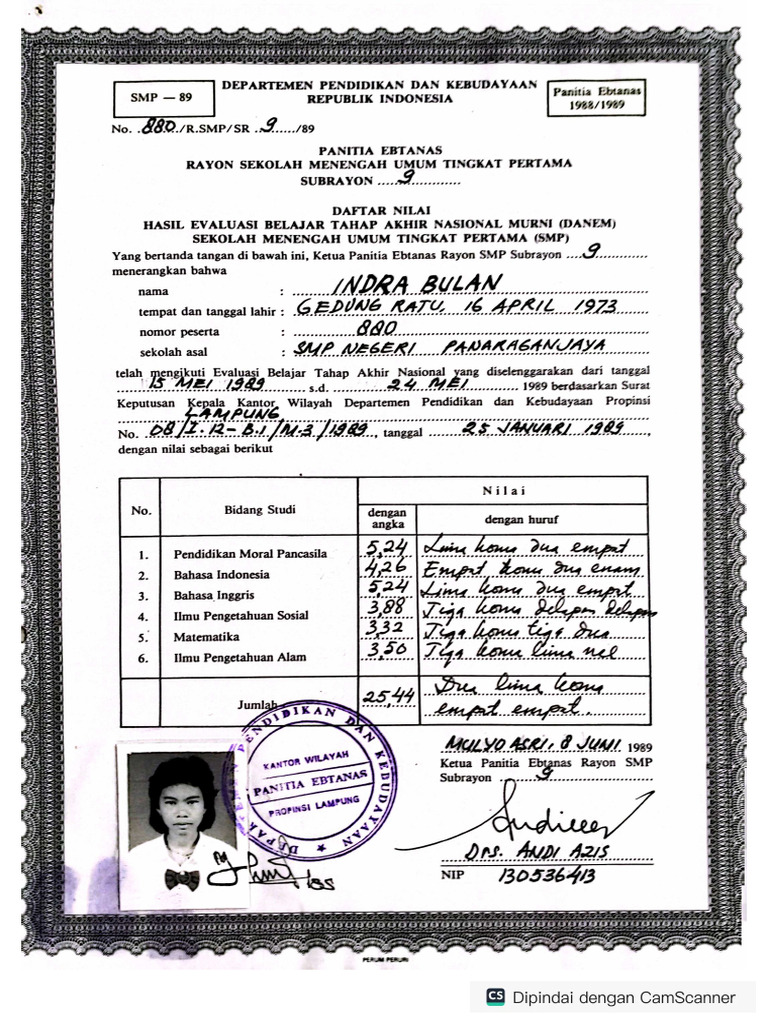 SMP — 89
DEPARTEMEN PENDIDIKAN DAN KEBUDAYAAN
REPUBLIK INDONESIA
Panitia Ebtanas
1988/1989
No. .880./R.SMP/SR .9....../89
PANITIA EBTANAS
RAYON SEKOLAH MENENGAH UMUM TINGKAT PERTAMA
SUBRAYON .....9............
DAFTAR NILAI
HASIL EVALUASI BELAJAR TAHAP AKHIR NASIONAL MURNI (DANEM)
SEKOLAH MENENGAH UMUM TINGKAT PERTAMA (SMP)
Yang bertanda tangan di bawah ini, Ketua Panitia Ebtanas Rayon SMP Subrayon ....9.....
menerangkan bahwa
nama : INDRA BULAN
tempat dan tanggal lahir : GEDUNG RATU, 16 APRIL 1973
nomor peserta : 880
sekolah asal : SMP NEGERI PANARAGANJAYA
telah mengikuti Evaluasi Belajar Tahap Akhir Nasional yang diselenggarakan dari tanggal
15 MEI 1989 s.d. 24 MEI 1989 berdasarkan Surat
Keputusan Kepala Kantor Wilayah Departemen Pendidikan dan Kebudayaan Propinsi
LAMPUNG
No. 08/I.12-B.1/M.3/1989, tanggal 25 JANUARI 1989,
dengan nilai sebagai berikut
No. Bidang Studi Nilai
dengan angka dengan huruf
1. Pendidikan Moral Pancasila 5,24 Lima koma dua empat
2. Bahasa Indonesia 4,26 Empat koma dua enam
3. Bahasa Inggris 5,24 Lima koma dua empat
4. Ilmu Pengetahuan Sosial 3,88 Tiga koma delapan delapan
5. Matematika 3,32 Tiga koma tiga dua
6. Ilmu Pengetahuan Alam 3,50 Tiga koma lima nol
Jumlah 25,44 Dua lima koma
empat empat.
DEPARTEMEN PENDIDIKAN DAN KEBUDAYAAN
KANTOR WILAYAH
PANITIA EBTANAS
PROPINSI LAMPUNG
MULYO ASRI, 8 JUNI 1989
Ketua Panitia Ebtanas Rayon SMP
Subrayon 9
Drs. ANDI AZIS
NIP 130536413
PERUM PERURI
CS Dipindai dengan CamScanner